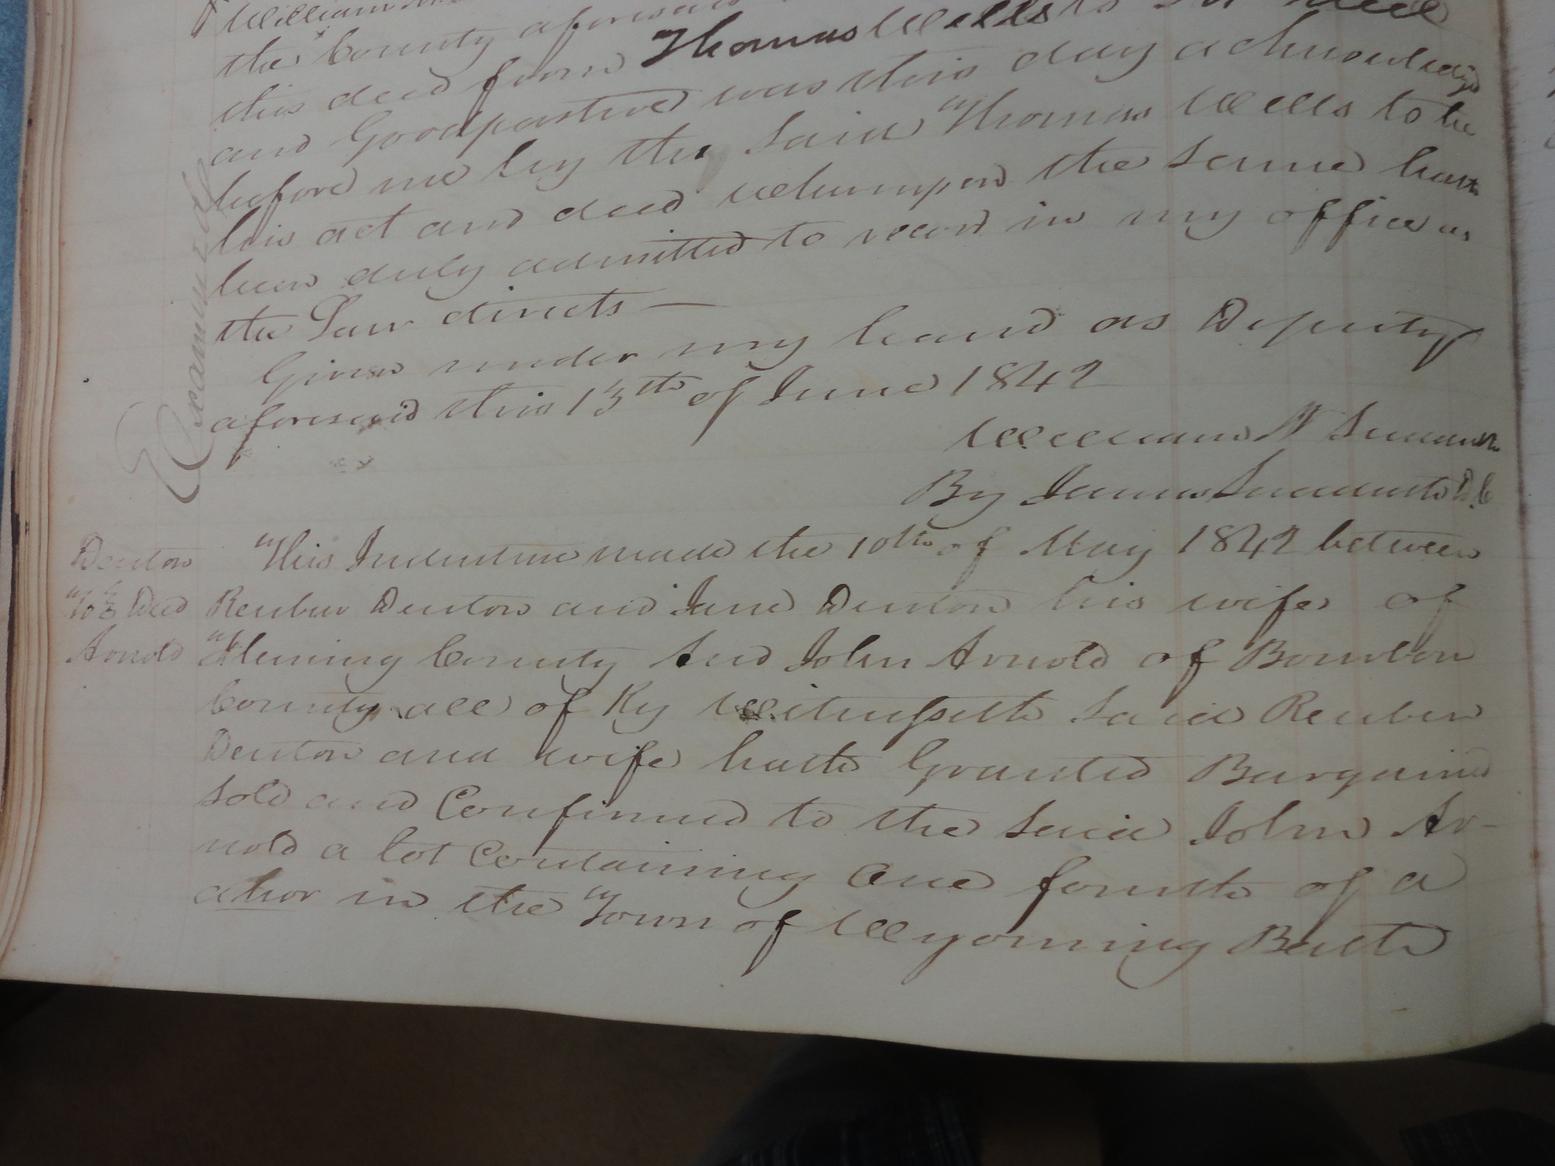 William
the County aforesaid
this deed from Thomas Wells to
and Goodpasture was this day acknowledged
before me by the said Thomas Wells to be
his act and deed whereupon the same hath
been duly admitted to record in my office as
the Law directs —
Given under my hand as Deputy
aforesaid this 13th of June 1842
William W
By James D.C
Examined
Denton
To } Deed
Arnold
This Indenture made the 10th of May 1842 between
Reuben Denton and Jane Denton his wife of
Fleming County And John Arnold of Bourbon
County all of Ky Witnesseth Said Reuben
Denton and wife hath Granted Bargained
Sold and Confirmed to the Said John Ar-
nold a lot Containing One fourth of a
aker in the Town of Wyoming Bath